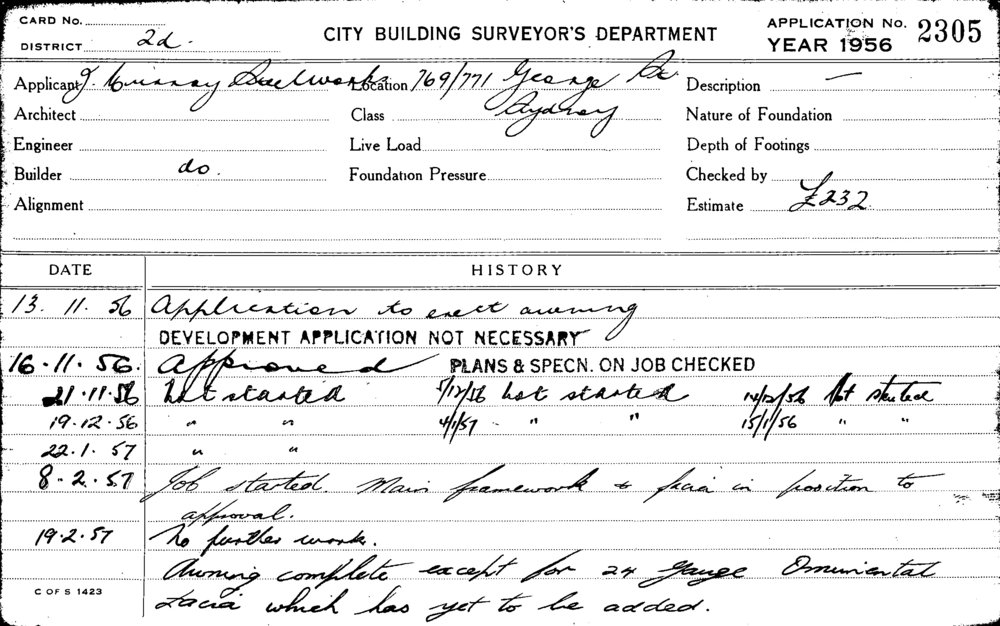 CARD No.
DISTRICT 2d.
CITY BUILDING SURVEYOR'S DEPARTMENT
APPLICATION No. 2305
YEAR 1956
Applicant J. Murray Steelworks Location 769/771 George St Description —
Architect Class Sydney Nature of Foundation
Engineer Live Load Depth of Footings
Builder do. Foundation Pressure Checked by
Alignment Estimate £232
DATE HISTORY
13. 11. 56 Application to erect awning
DEVELOPMENT APPLICATION NOT NECESSARY
16.11.56. Approved PLANS & SPECN. ON JOB CHECKED
21.11.56 Not started 5/12/56 Not started 14/12/56 Not started
19.12.56 " " 4/1/57 - " " 15/1/56 " "
22.1.57 " "
8.2.57 Job started. Main framework & facia in position to
approval.
19.2.57 No further work.
Awning complete except for 24 gauge Ornimental
Facia which has yet to be added.
C OF S 1423